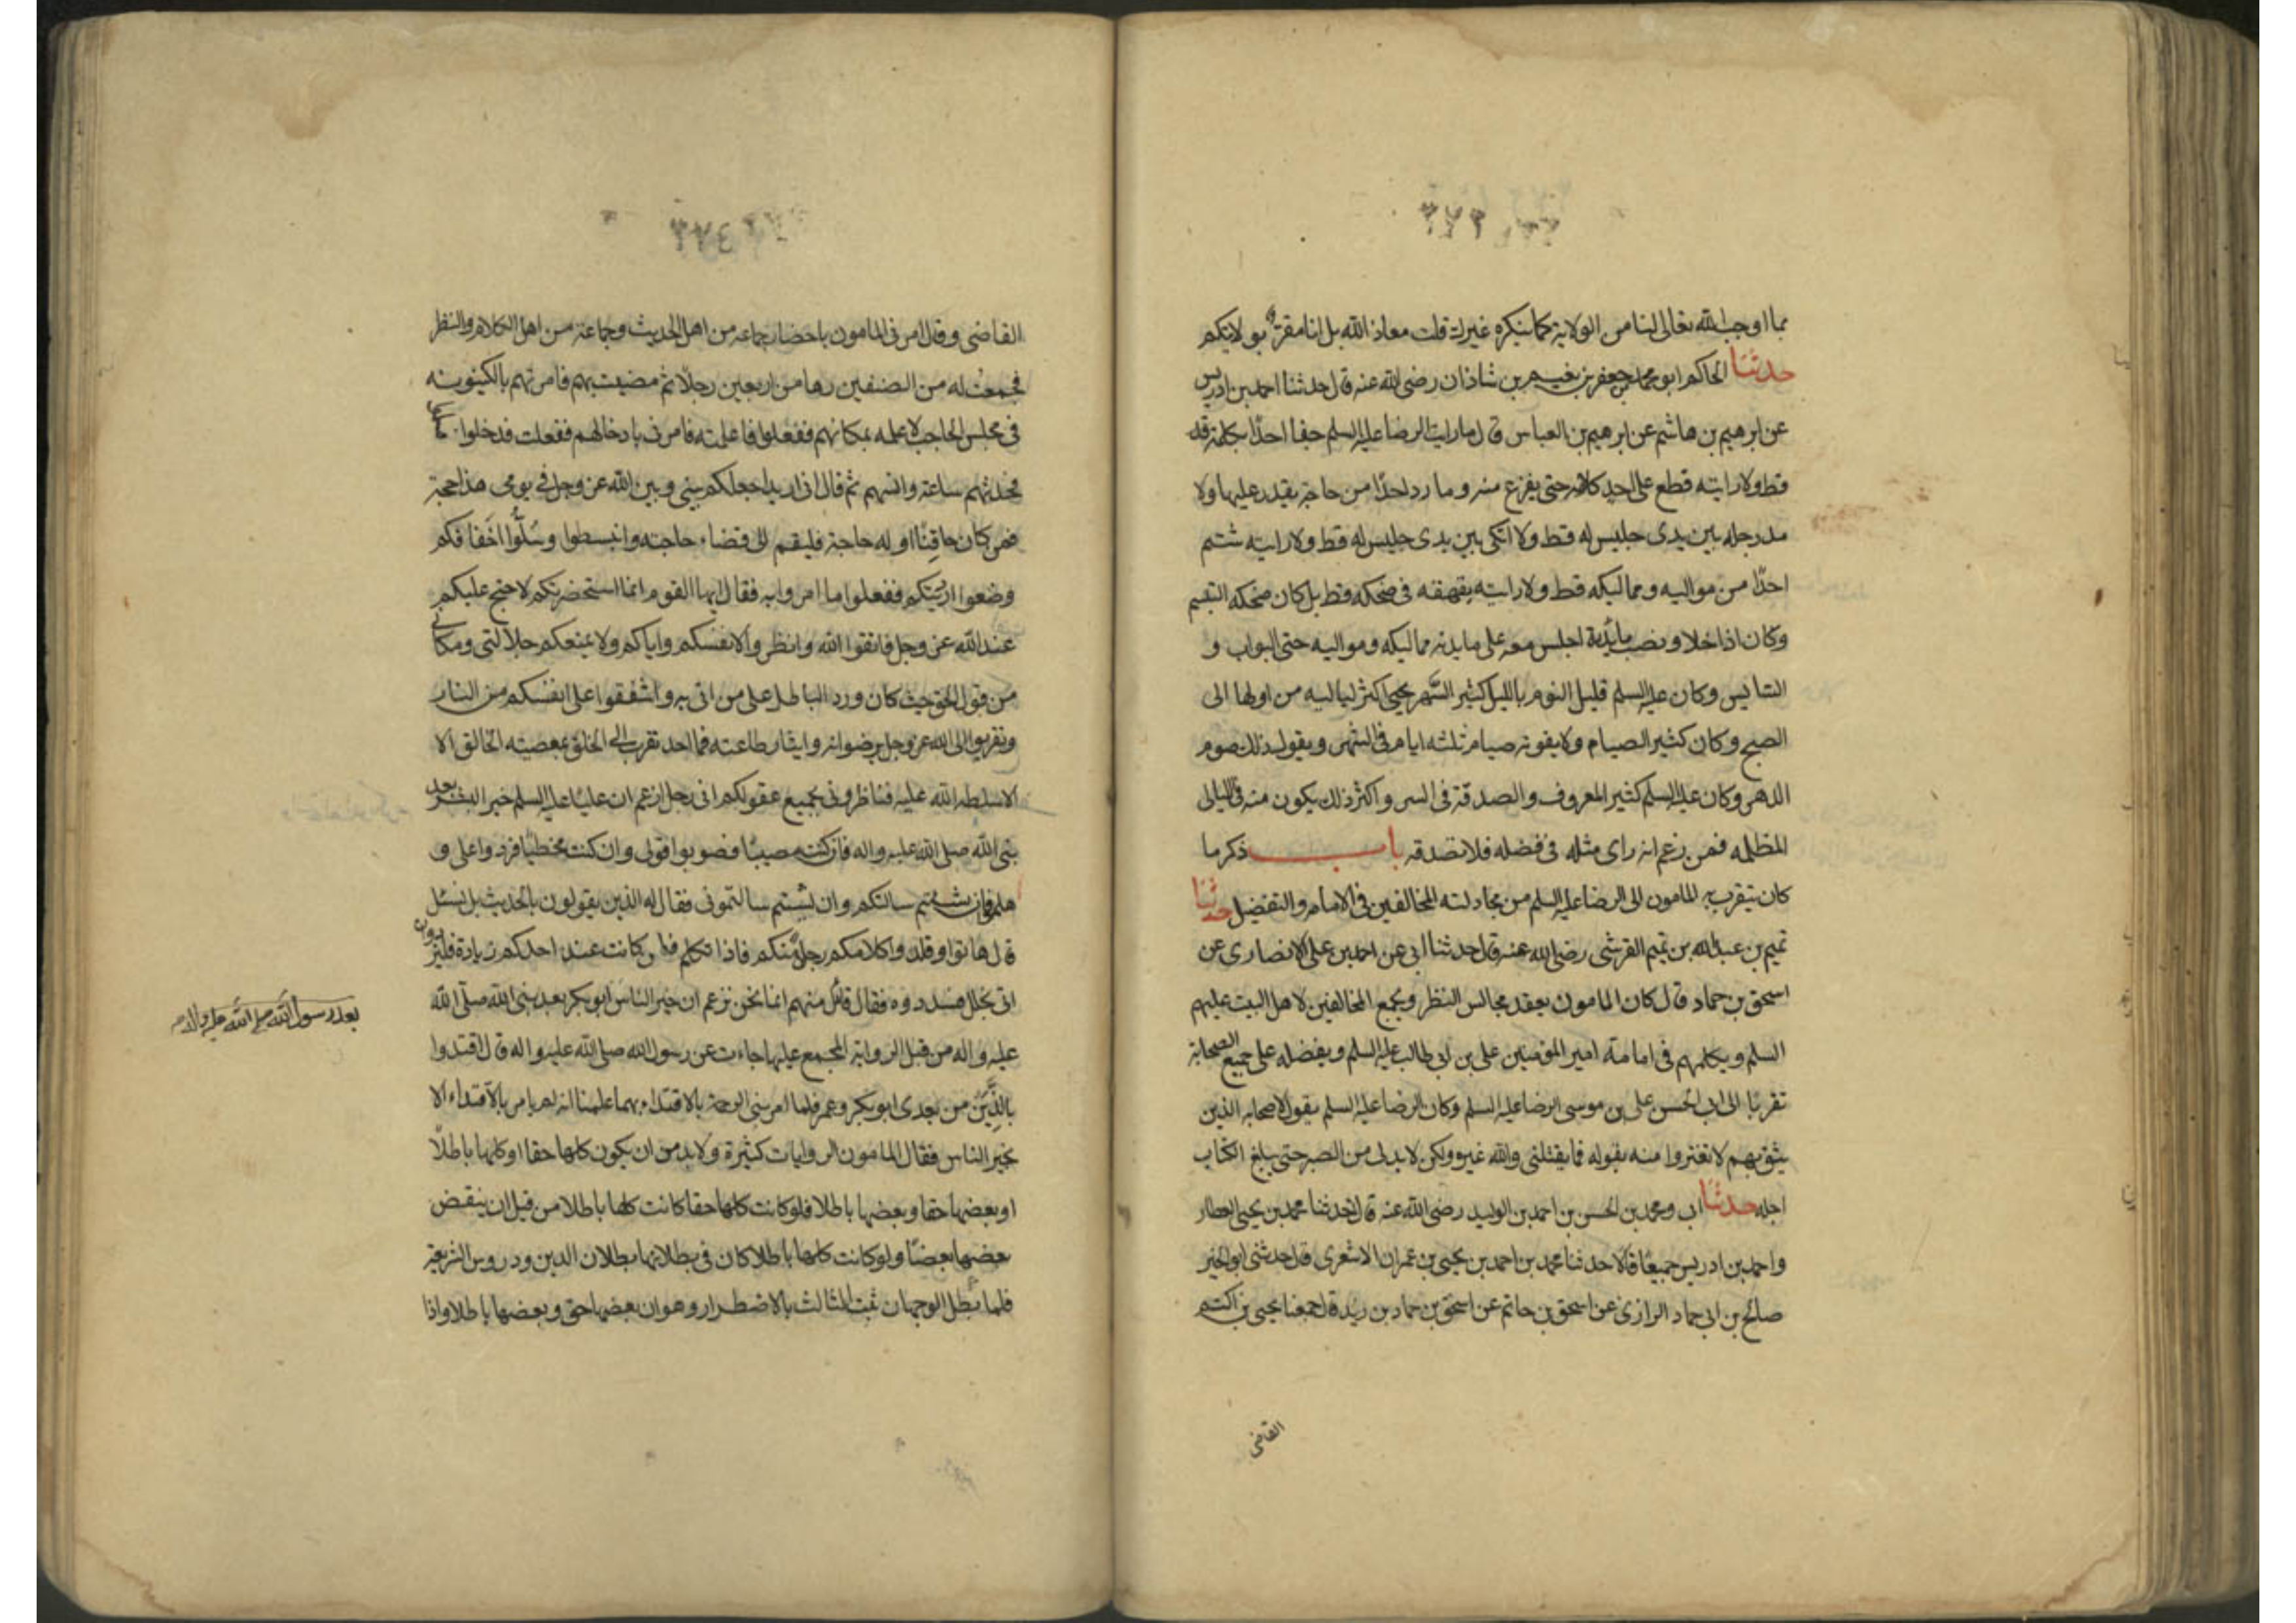 ٣٧٣
بما اوجب الله تعالى لنا من الولاية كما ينكره غيرك قلت معاذ الله بل انا مقر بولايتكم
حدثنا الحاكم ابو محمد جعفر بن نعيم بن شاذان رضى الله عنه قال حدثنا احمد بن ادريس
عن ابرهيم بن هاشم عن ابرهيم بن العباس قال ما رايت الرضا عليه السلم جفا احدًا بكلمة قط
قط ولا رايته قطع على احد كلامه حتى يفرغ منه وما رد احدًا من حاجة يقدر عليها ولا
مد رجله بين يدى جليس له قط ولا اتكى بين يدى جليس له قط ولا رايته شتم
احدًا من مواليه ومماليكه قط ولا رايته يقهقه فى ضحكه قط بل كان ضحكه التبسم
وكان اذا خلا ونصب مائدة اجلس معه على مايدته مماليكه ومواليه حتى البواب و
السايس وكان عليه السلم قليل النوم بالليل كثير السَّهر يحيى اكثر لياليه من اولها الى
الصبح وكان كثير الصيام ولا يفوته صيام ثلثه ايام فى الشهر ويقول ذلك صوم
الدهر وكان عليه السلم كثير المعروف والصدقة فى السر واكثر ذلك يكون منه فى الليالى
المظلمه فمن زعم انه راى مثله فى فضله فلا تصدقه باب ذكر ما
كان يتقرب به المامون الى الرضا عليه السلم من مجادلته المخالفين فى الامامه والتفضيل حدثنا
تميم بن عبد الله بن تميم القرشى رضى الله عنه قال حدثنا ابى عن احمد بن على الانصارى عن
اسحق بن حماد قال كان المامون يعقد مجالس النظر ويجمع المخالفين لاهل البيت عليهم
السلم ويكلمهم فى امامة امير المؤمنين على بن ابى طالب عليه السلم ويفضله على جميع الصحابة
تقربًا الى ابى الحسن على بن موسى الرضا عليه السلم وكان الرضا عليه السلم يقول لاصحابه الذين
يثق بهم لا تغتروا منه بقوله فما يقتلنى والله غيره ولكن لا بد لى من الصبر حتى يبلغ الكتاب
اجله حدثنا ابى ومحمد بن الحسن بن احمد بن الوليد رضى الله عنه قال حدثنا محمد بن يحيى العطار
واحمد بن ادريس جميعًا قالا حدثنا محمد بن احمد بن يحيى بن عمران الاشعرى قال حدثنى ابو الخير
صالح بن ابى حماد الرازى عن اسحق بن حاتم عن اسحق بن حماد بن زيد قال جمعنا يحيى بن اكثم
القاضى
٣٧٤
القاضى وقال امرنى المامون باحضار جماعه من اهل الحديث وجماعة من اهل الكلام والنظر
فجمعت له من الصنفين زها من اربعين رجلًا ثم مضيت بهم فامرتهم بالكينونه
فى مجلس الحاجب لاعلمه بمكانهم ففعلوا فاعلمته فامرنى بادخالهم ففعلت فدخلوا
فحدثهم ساعة وانسهم ثم قال انى اريد اجعلكم بينى وبين الله عز وجل فى يومى هذا حجة
فمن كان حاقنًا او له حاجة فليقم الى قضاء حاجته وانبسطوا وسُلّوا اخفافكم
وضعوا ارديتكم ففعلوا ما امروا به فقال ايها القوم انما استحضرتكم لاحتج عليكم
عند الله عز وجل فاتقوا الله وانظروا لانفسكم وايامكم ولا يمنعكم جلالتى ومكانى
من قول الحق حيث كان ورد الباطل على من اتى به واشفقوا على انفسكم من النار
وتقربوا الى الله عز وجل برضوانه وايثار طاعته فما احد تقرب الى الخلق بمعصيته الخالق الا
الا سلطه الله عليه فناظرونى بجميع عقولكم انى رجل ازعم ان عليًا عليه السلم خير البشر بعد
نبى الله صلى الله عليه واله فان كنت مصيبًا فصوبوا قولى وان كنت مخطيًا فردوا على و
هلموا فان شئتم سالتكم وان شئتم سالتمونى فقال له الذين يقولون بالحديث بل نسئل
قال هاتوا وقلدوا كلامكم رجلًا منكم فاذا تكلم فان كانت عند احدكم زيادة فليزد وان
اتى بخلل فسددوه فقال قائل منهم انما نحن نزعم ان خير الناس ابو بكر بعد نبى الله صلى الله
بعد رسول الله صلى الله عليه واله
عليه واله من قبل الرواية المجمع عليها جاءت عن رسول الله صلى الله عليه واله قال اقتدوا
بالذين من بعدى ابو بكر وعمر فلما امر نبى الرحمة بالاقتداء بهما علمنا انه لم يامر بالاقتداء الا
بخير الناس فقال المامون الروايات كثيرة ولا بد من ان يكون كلها حقا او كلها باطلًا
او بعضها حقا وبعضها باطلا فلو كانت كلها حقا كانت كلها باطلا من قبل ان ينقض
بعضها بعضًا ولو كانت كلها باطلا كان فى بطلانها بطلان الدين ودروس الشريعة
فلما بطل الوجهان ثبت الثالث بالاضطرار وهو ان بعضها حق وبعضها باطلا واذا